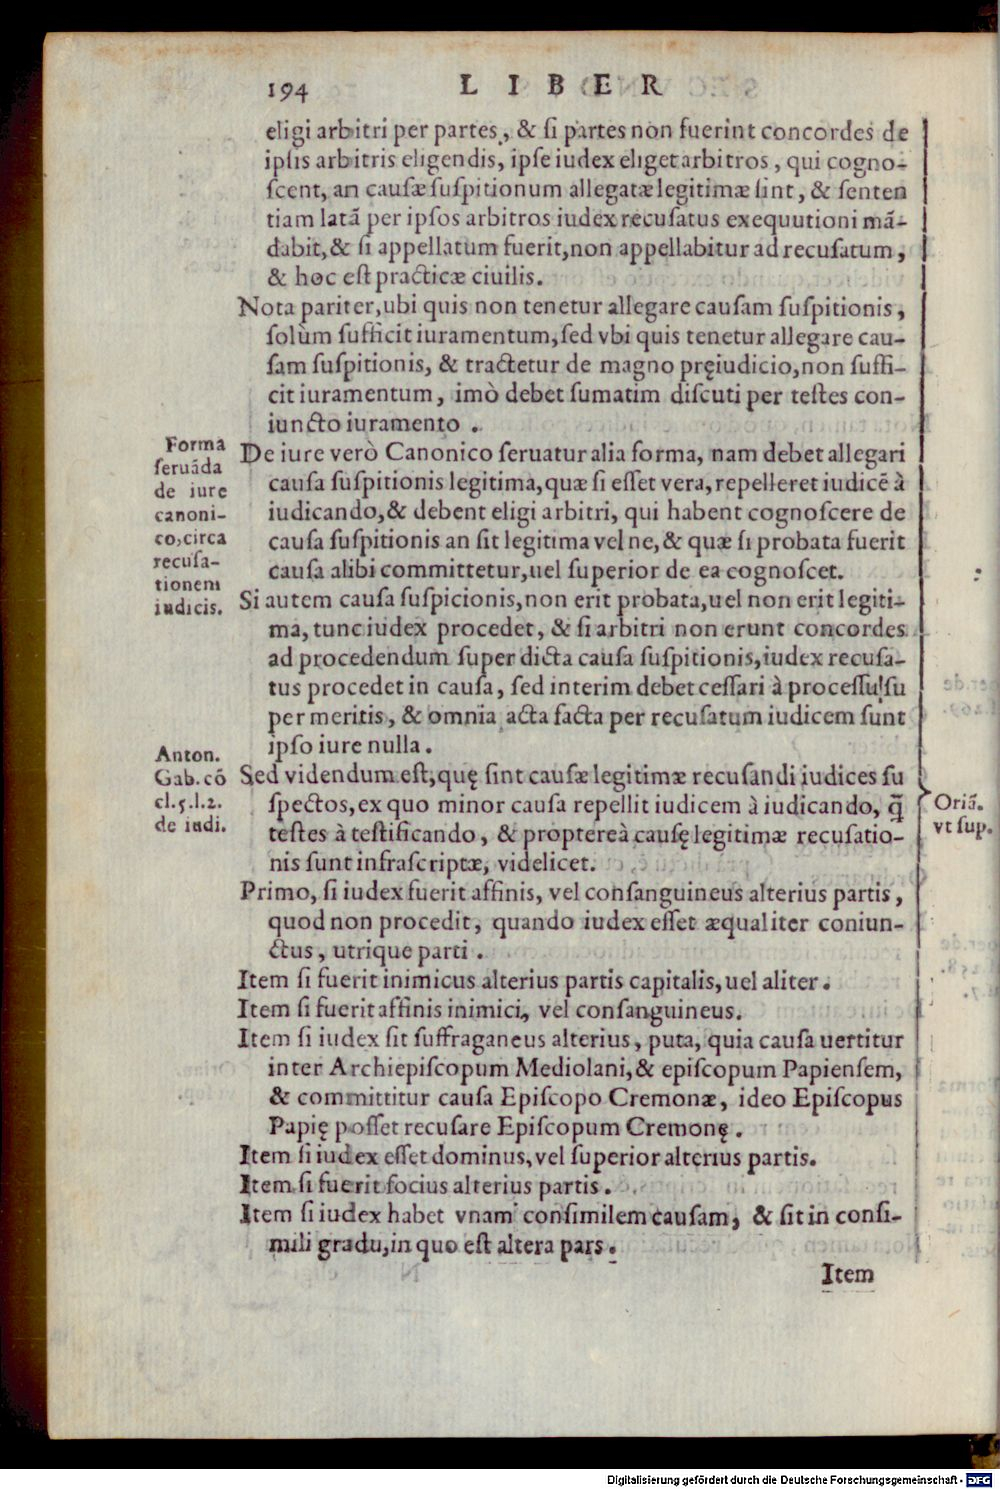 194 LIBER
eligi arbitri per partes, & ſi partes non fuerint concordes de
ipſis arbitris eligendis, ipſe iudex eliget arbitros, qui cogno-
ſcent, an cauſæ ſuſpitionum allegatæ legitimæ ſint, & ſenten
tiam latã per ipſos arbitros iudex recuſatus exequutioni mã-
dabit, & ſi appellatum fuerit, non appellabitur ad recuſatum,
& hoc eſt practicæ ciuilis.
Nota pariter, ubi quis non tenetur allegare cauſam ſuſpitionis,
ſolùm ſufficit iuramentum, ſed vbi quis tenetur allegare cau-
ſam ſuſpitionis, & tractetur de magno pręiudicio, non ſuffi-
cit iuramentum, imò debet ſumatim diſcuti per teſtes con-
iuncto iuramento.
Forma
ſeruãda
de iure
canoni-
co, circa
recuſa-
tionem
iudicis.
De iure verò Canonico ſeruatur alia forma, nam debet allegari
cauſa ſuſpitionis legitima, quæ ſi eſſet vera, repelleret iudicẽ à
iudicando, & debent eligi arbitri, qui habent cognoſcere de
cauſa ſuſpitionis an ſit legitima vel ne, & quæ ſi probata fuerit
cauſa alibi committetur, uel ſuperior de ea cognoſcet.
Si autem cauſa ſuſpicionis, non erit probata, uel non erit legiti-
ma, tunc iudex procedet, & ſi arbitri non erunt concordes
ad procedendum ſuper dicta cauſa ſuſpitionis, iudex recuſa-
tus procedet in cauſa, ſed interim debet ceſſari à proceſſu ſu
per meritis, & omnia acta facta per recuſatum iudicem ſunt
ipſo iure nulla.
Anton.
Gab. cõ
cl. 5. l. 2.
de iudi.
Sed videndum eſt, quę ſint cauſæ legitimæ recuſandi iudices ſu
ſpectos, ex quo minor cauſa repellit iudicem à iudicando, q̃
teſtes à teſtificando, & proptereà cauſę legitimæ recuſatio-
nis ſunt infraſcriptæ, videlicet.
Oriã.
vt ſup.
Primo, ſi iudex fuerit affinis, vel conſanguineus alterius partis,
quod non procedit, quando iudex eſſet æqualiter coniun-
ctus, utrique parti.
Item ſi fuerit inimicus alterius partis capitalis, uel aliter.
Item ſi fuerit affinis inimici, vel conſanguineus.
Item ſi iudex ſit ſuffraganeus alterius, puta, quia cauſa uertitur
inter Archiepiſcopum Mediolani, & epiſcopum Papienſem,
& committitur cauſa Epiſcopo Cremonæ, ideo Epiſcopus
Papię poſſet recuſare Epiſcopum Cremonę.
Item ſi iudex eſſet dominus, vel ſuperior alterius partis.
Item ſi fuerit ſocius alterius partis.
Item ſi iudex habet vnam conſimilem cauſam, & ſit in conſi-
mili gradu, in quo eſt altera pars.
Item
Digitalisierung gefördert durch die Deutsche Forschungsgemeinschaft - DFG